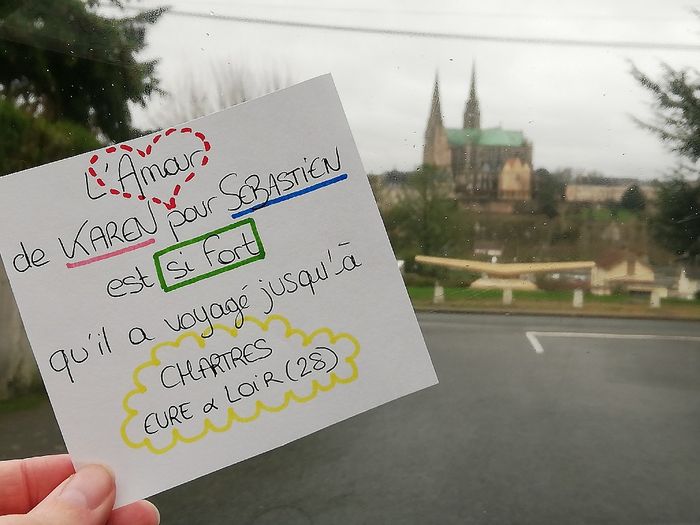 L'Amour
de KAREN pour SEBASTIEN
est si fort
qu'il a voyagé jusqu'à
CHARTRES
EURE & LOIR (28)